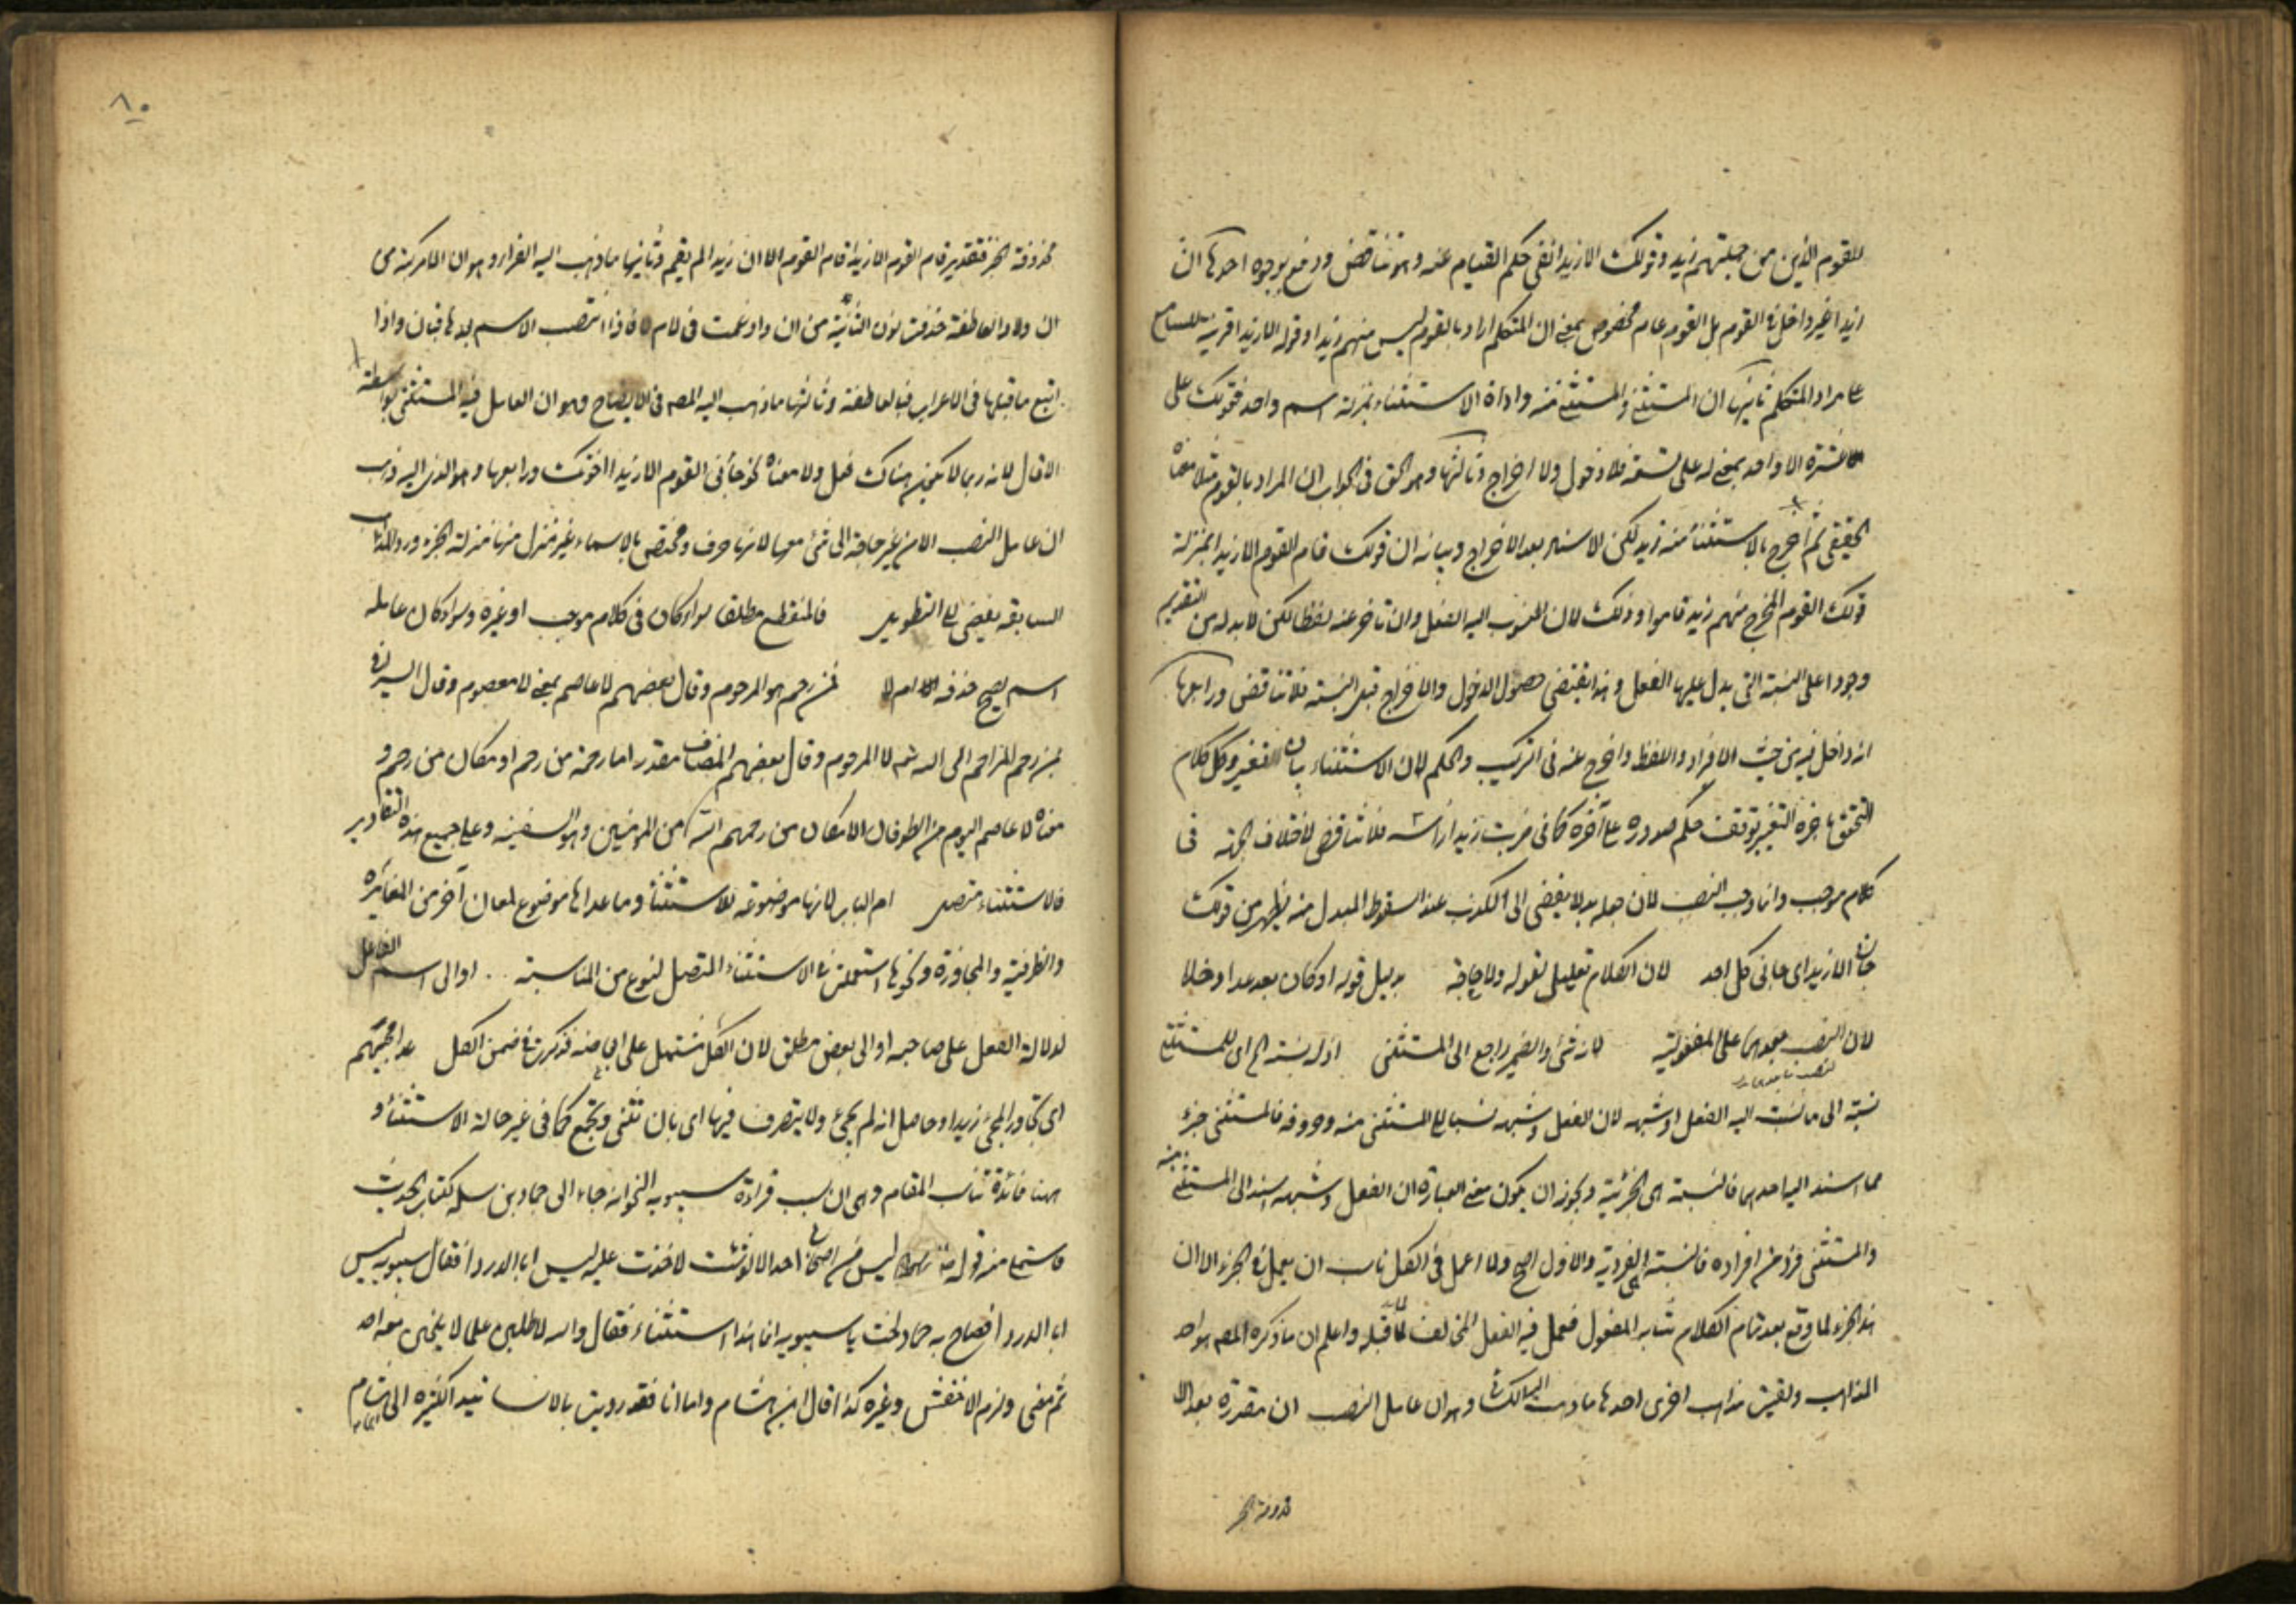 للقوم الذين من جملتهم زيد وقولك الا زيدا نفى حكم القيام عنه وهو تناقض ودفع بوجوه احدها ان
زيدا غير داخل في القوم بل القوم عام مخصوص بمعنى ان المتكلم اراد بالقوم ليس منهم زيد او قوله الا زيدا قرينة للسامع
على مراد المتكلم ثانيها ان المستثنى والمستثنى منه واداة الاستثناء بمنزلة اسم واحد فقولك على
عشرة الا واحد بمعنى له على تسعة فلا دخول ولا اخراج وثالثها وهو الحق في الجواب ان المراد بالقوم مثلا معناه
الحقيقي ثم اخرج بالاستثناء منه زيد لكن الاسناد بعد الاخراج وبيانه ان قولك قام القوم الا زيدا بمنزلة
قولك القوم المخرج منهم زيد قاموا وذلك لان المنسوب اليه الفعل وان تاخر عنه لفظا لكن لا بد له من التقديم
وجودا على النسبة التى يدل عليها الفعل وهذا يقتضى حصول الدخول والاخراج قبل النسبة فلا تناقض ورابعها
انه داخل فيه من حيث الافراد واللفظ واخرج عنه فى التركيب والحكم لان الاستثناء بيان التغير وكل كلام
التحق باخره التغير توقف حكم صدوره على آخره كما فى ضربت زيدا راسه فلا تناقض لاختلاف الجهة فى
كلام موجب وانما وجب النصب لان جعله بدلا يفضى الى الكذب عند السقوط المبدل منه يظهر من قولك
جانى الا زيد اى جانى كل احد لان الكلام تعليل لقوله ولا حاجة بدليل قوله او كان بعد عدا وخلا
لان النصب على المفعولية لانه شئ والضمير راجع الى المستثنى اذ له نسبة الخ اى للمستثنى
نسبة الى ما نسب اليه الفعل او شبهه لان الفعل وشبهه نسبا الى المستثنى منه وحروفه فالمستثنى جزء
مما اسند اليه احدهما فالنسبة هى الجزئية ويجوز ان يكون معنى العبارة ان الفعل وشبهه اسند الى المستثنى منه
والمستثنى فرد من افراده فالنسبة هى الفردية والاول اصح ولما اعمل فى الكل ناسب ان يعمل فى الجزء الا ان
هذا الجزء لما وقع بعد تمام الكلام شابه المفعول فعمل فيه الفعل المخالف لما قبله واعلم ان ما ذكره المص هو احد
المذاهب وبقيت مذاهب اخرى احدها ما ذهب اليه وهو ان عامل النصب ان مقدرة بعد الا
محذوفة الخبر
محذوفة الخبر فتقدير قام القوم الا زيدا قام القوم الا ان زيدا لم يقم وثانيها ما ذهب اليه الفراء وهو ان الا مركبة من
ان ولا العاطفة حذفت نون الثانية من ان وادغمت فى لام لا فاذا انتصب الاسم بعدها فبان واذا
اتبع ما قبلها فى الاعراب فبالعاطفة وثالثها ما ذهب اليه المص فى الايضاح وهو ان العامل فيه المستثنى بواسطة
الا قال لانه ربما لا يكون هناك فعل ولا معناه نحو جاءنى القوم الا زيدا اخوك ورابعها وهو الذى اليه ذهب
ان عامل النصب الا من غير حاجة الى شئ معها لانها حرف ومختص بالاسماء غير منزل منها منزلة الجزء ورد المذاهب
السابقة يفضى الى التطويل فالمنقطع مطلقا سواء كان فى كلام موجب او غيره وسواء كان عامله
اسم يصح حذفه ام لا فمن رحم هو المرحوم وقال بعضهم لا عاصم بمعنى لا معصوم وقال السيرافى
من رحم الراحم اى الله تعالى لا المرحوم وقال بعضهم المضاف مقدر اما رحمة من رحم او مكان من رحم و
معناه لا عاصم اليوم من الطوفان الا مكان من رحمهم الله من المؤمنين وهو السفينة وعلى جميع هذه التقادير
فالاستثناء متصل ام الباب لانها موضوعة للاستثناء وما عداها موضوع لمعان آخر من المغايرة
والظرفية والمجاوزة ونحوها استعملت فى الاستثناء المتصل لنوع من المناسبة او الى اسم الفاعل
لدلالة الفعل على صاحبه او الى بعض مطلق لان الكل مشتمل على ابعاضه فذكرت فى ضمن الكل عدا مجيئهم
اى تجاوز المجئ زيدا وحاصل انه لم يجئ ولا يتصرف فيها اى بان تثنى وتجمع كما فى غير حالة الاستثناء و
ههنا فائدة تناسب المقام وهى ان سبب قراءة سيبويه النحو انه جاء الى حماد بن سلمة لكتابة الحديث
فاستملى منه قوله ليس من اصحابى احد الا لو شئت لاخذت عليه ليس ابا الدرداء فقال سيبويه ليس
ابا الدرداء فصاح به حماد لحنت يا سيبويه انما هذا استثناء فقال والله لاطلبن علما لا يلحننى معه احد
ثم مضى ولزم الاخفش وغيره كذا قال ابن هشام واما انا فقد رويت بالاسانيد الكثيرة الى هشام